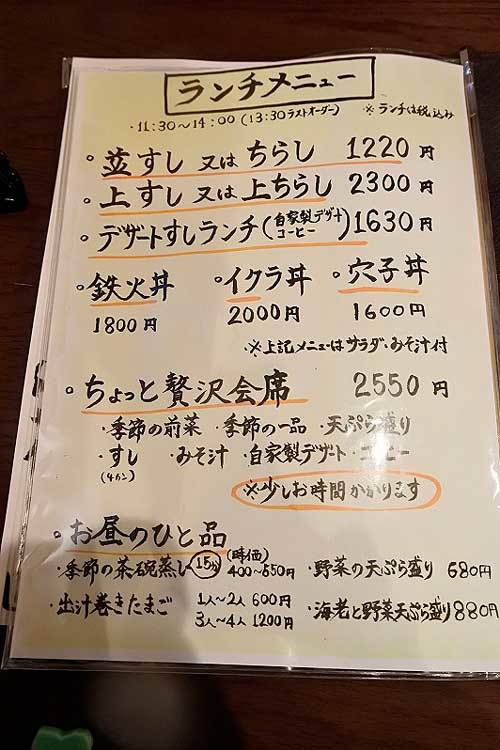 ランチメニュー
・11:30〜14:00 (13:30 ラストオーダー) ※ランチは税込み
。並すし 又は ちらし 1220円
。上すし 又は 上ちらし 2300円
。デザートすしランチ(自家製デザート コーヒー)1630円
。鉄火丼 。イクラ丼 。穴子丼
1800円 2000円 1600円
※上記メニューはサラダ・みそ汁付
。ちょっと贅沢会席 2550円
・季節の前菜 ・季節の一品 ・天ぷら盛り
・すし ・みそ汁 ・自家製デザート・コーヒー
(4カン)
※少しお時間かかります
。お昼のひと品
・季節の茶碗蒸し 15分 (時価) 400〜550円 ・野菜の天ぷら盛り 680円
・出汁巻きたまご 1人〜2人 600円 ・海老と野菜天ぷら盛り 880円
3人〜4人 1200円